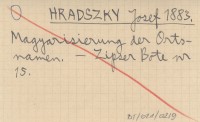 HRADSZKY Josef 1883.
Magyarisierung der Orts-
namen. - Zipser Bote nr
15.